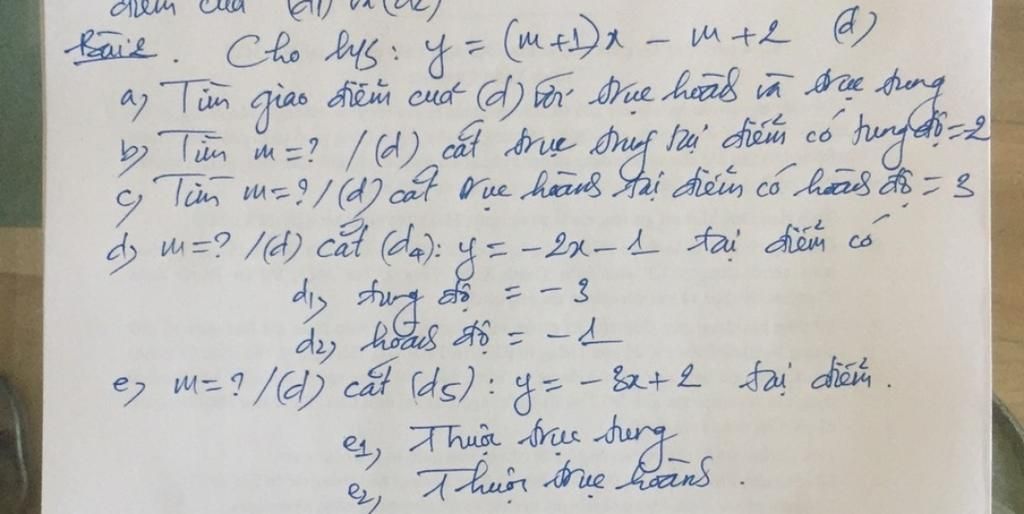 điểm của (d1) và (d2)
Bài 2. Cho hs: y = (m+1)x - m + 2 (d)
a, Tìm giao điểm của (d) với trục hoành và trục tung
b, Tìm m = ? / (d) cắt trục tung tại điểm có tung độ = 2
c, Tìm m = ? / (d) cắt trục hoành tại điểm có hoành độ = 3
d, m = ? / (d) cắt (d4): y = -2x - 1 tại điểm có
d1, tung độ = -3
d2, hoành độ = -1
e, m = ? / (d) cắt (d5): y = -3x + 2 tại điểm.
e1, Thuộc trục tung
e2, Thuộc trục hoành.